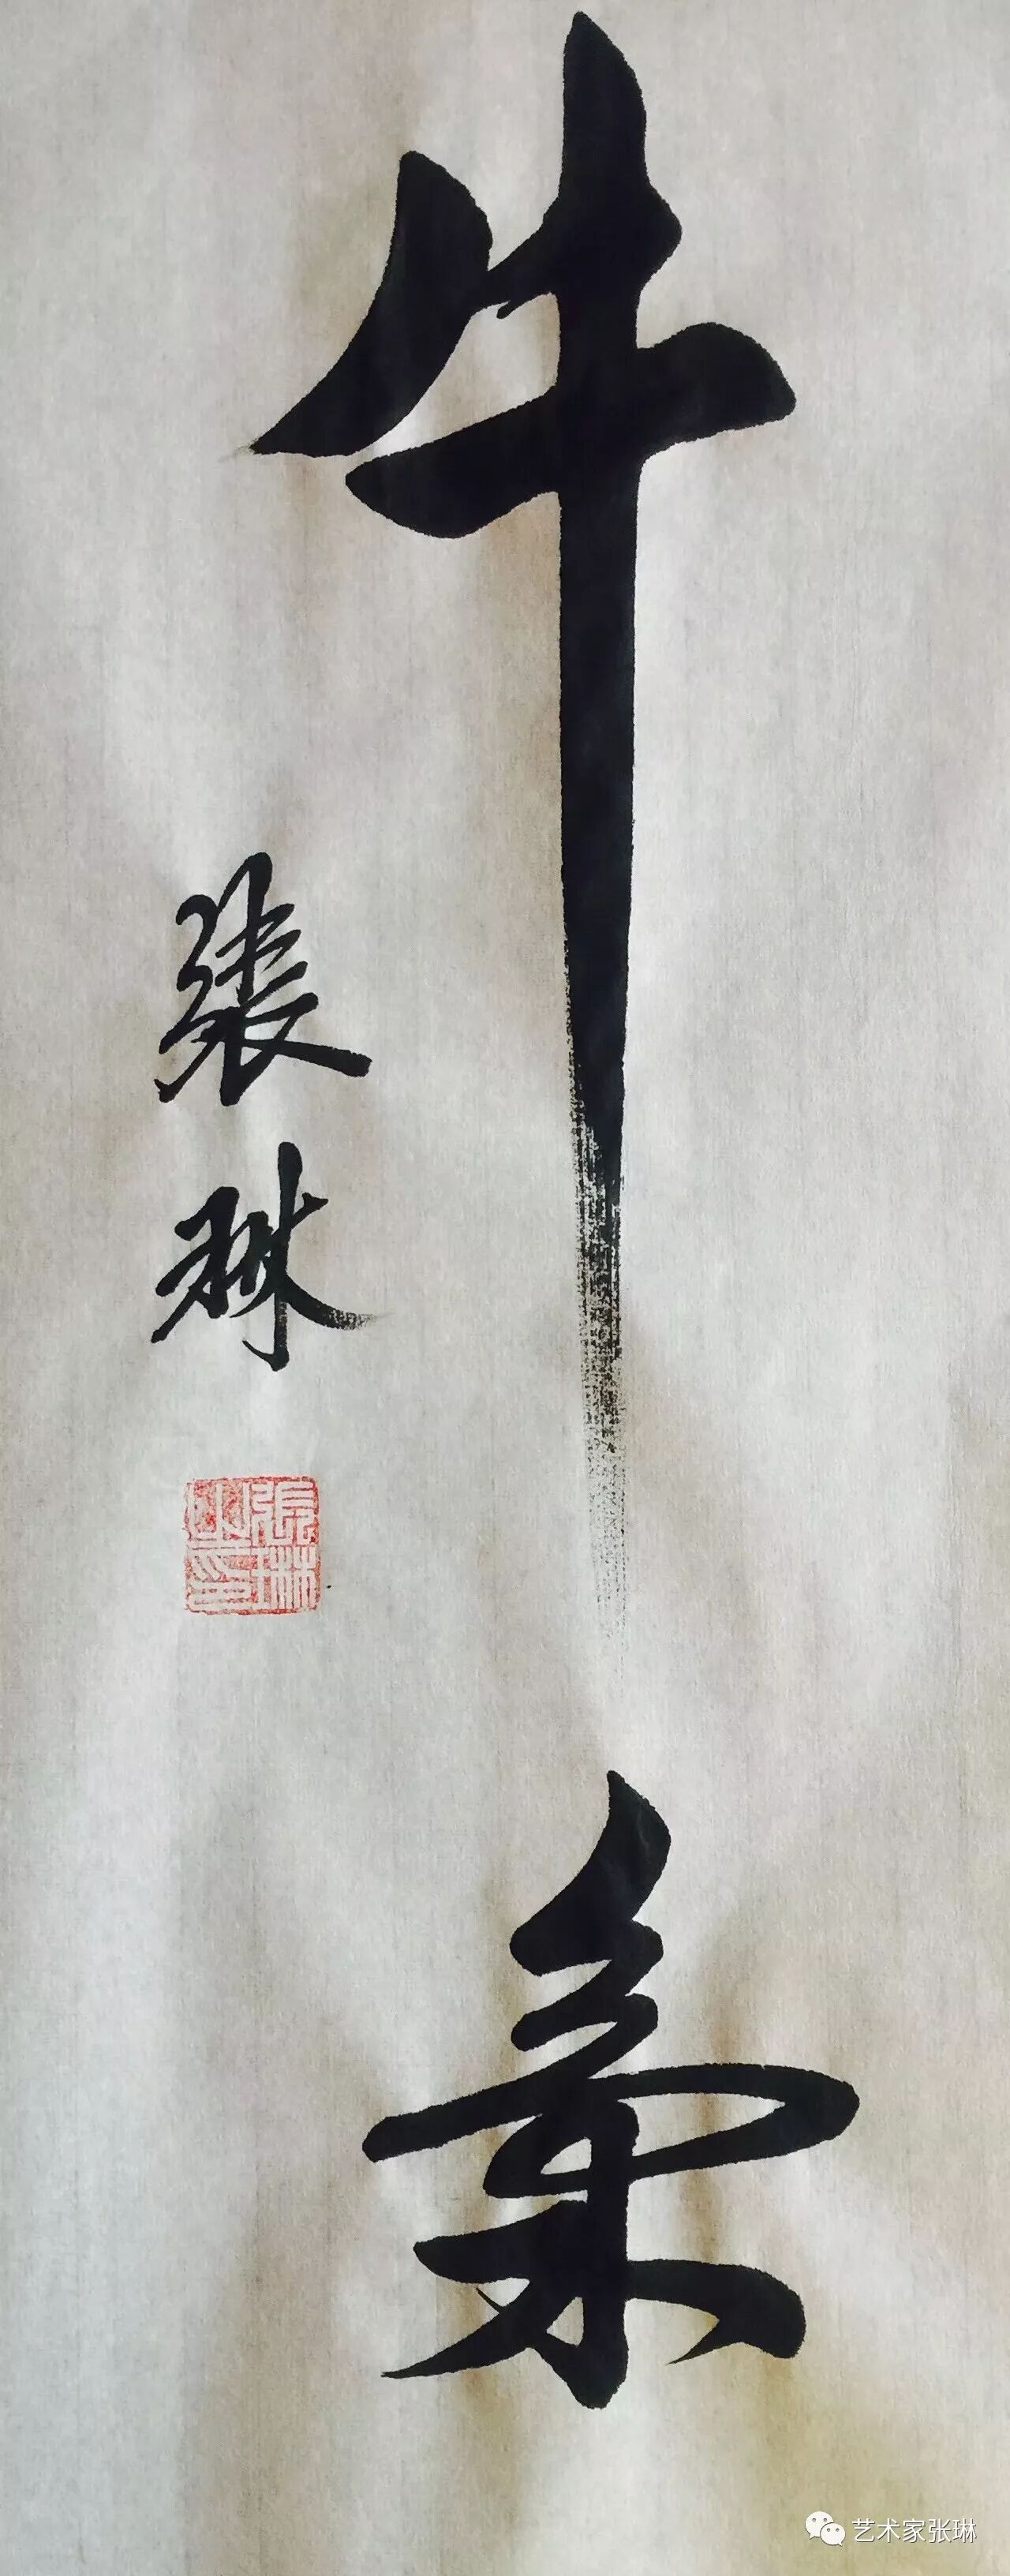 牛氣
張琳
張琳之印
艺术家张琳